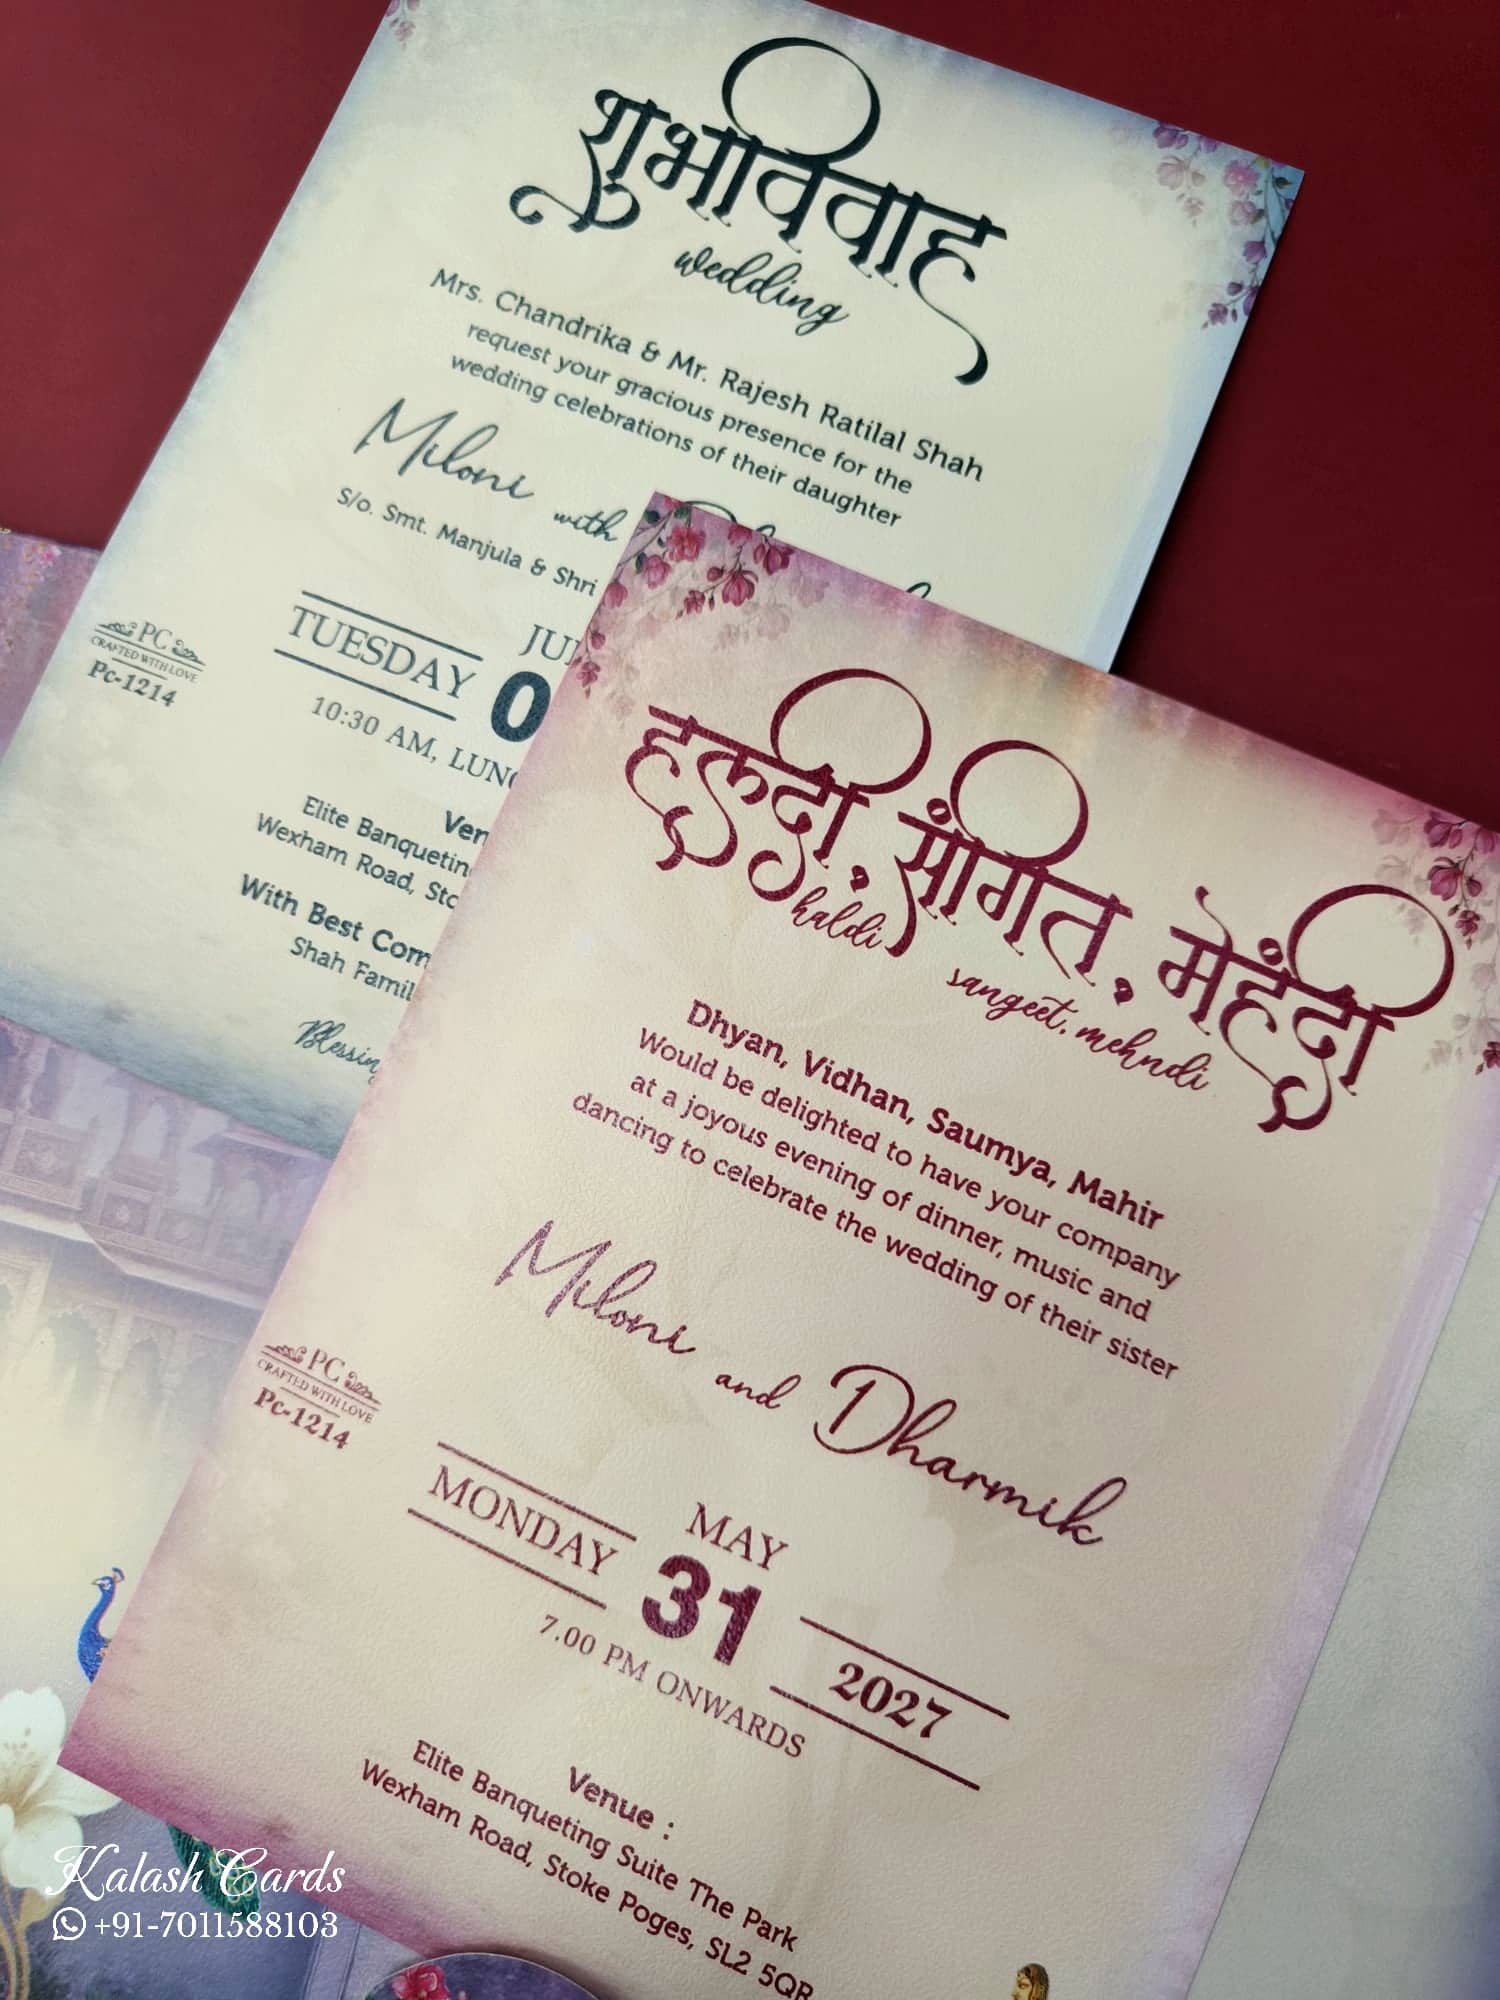 शुभविवाह
wedding
Mrs. Chandrika & Mr. Rajesh Ratilal Shah
request your gracious presence for the
wedding celebrations of their daughter
Miloni with
S/o. Smt. Manjula & Shri
TUESDAY
10:30 AM,
Elite
Wexham Road,
With Best
Shah
PC
CRAFTED WITH LOVE
Pc-1214
हल्दी, संगित, मेहंदी
haldi
sangeet, mehndi
Dhyan, Vidhan, Saumya, Mahir
Would be delighted to have your company
at a joyous evening of dinner, music and
dancing to celebrate the wedding of their sister
Miloni and Dharmik
PC
CRAFTED WITH LOVE
Pc-1214
MONDAY
MAY
31
2027
7.00 PM ONWARDS
Venue :
Elite Banqueting Suite The Park
Wexham Road, Stoke Poges, SL2 5QR
Kalash Cards
+91-7011588103